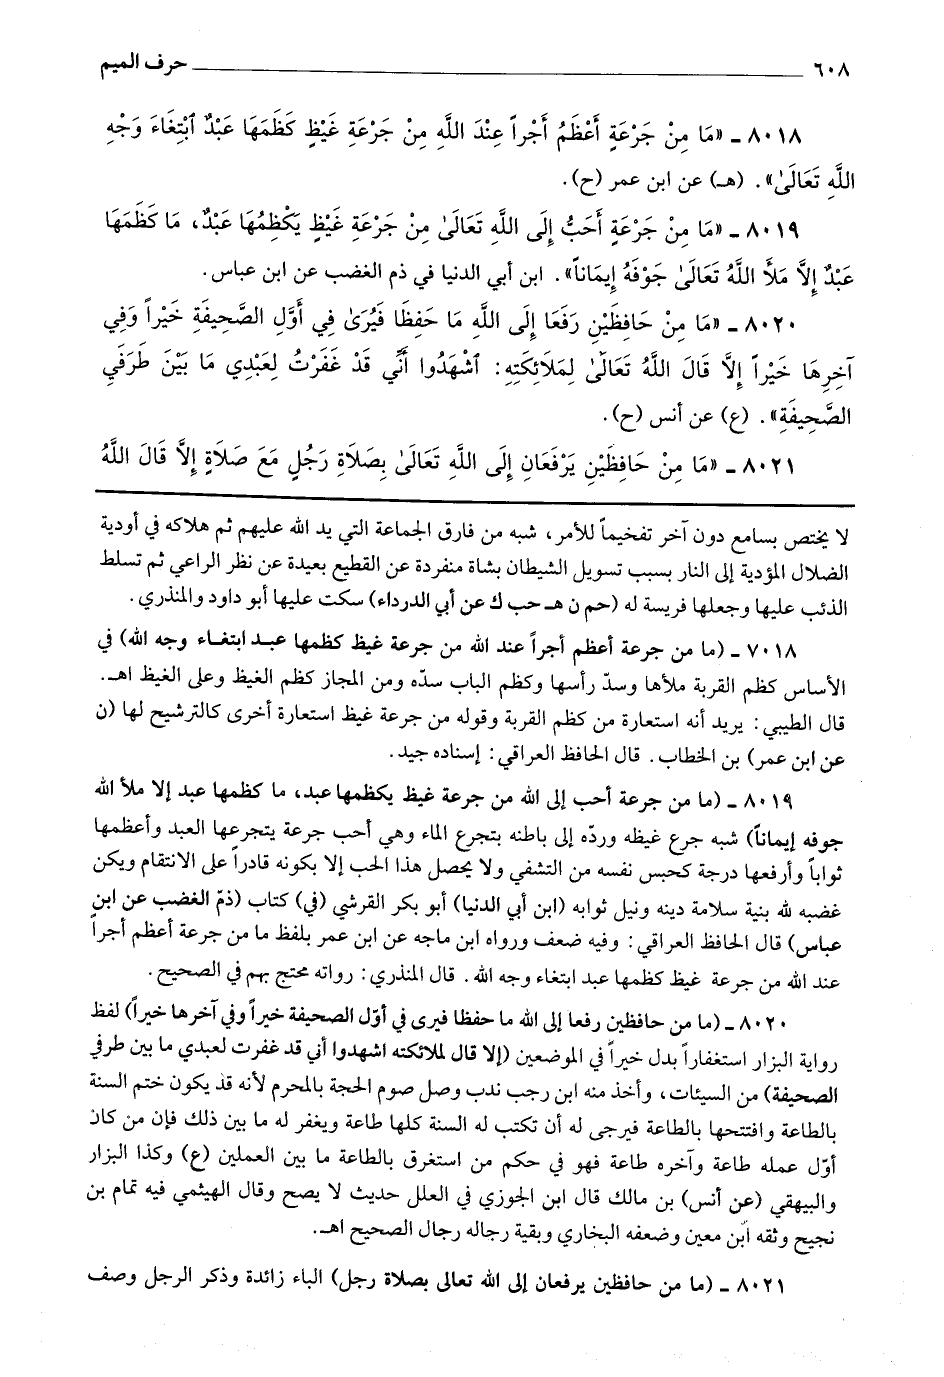 ٦٠٨ حرف الميم
٨٠١٨ ـ «مَا مِنْ جَرْعَةٍ أَعْظَمُ أَجْراً عِنْدَ اللَّهِ مِنْ جَرْعَةِ غَيْظٍ كَظَمَهَا عَبْدٌ ٱبْتِغَاءَ وَجْهِ
اللَّهِ تَعَالَىٰ». (هـ) عن ابن عمر (ح).
٨٠١٩ ـ «مَا مِنْ جَرْعَةٍ أَحَبُّ إِلَى اللَّهِ تَعَالَىٰ مِنْ جَرْعَةِ غَيْظٍ يَكْظِمُهَا عَبْدٌ، مَا كَظَمَهَا
عَبْدٌ إِلاَّ مَلأَ اللَّهُ تَعَالَىٰ جَوْفَهُ إِيمَاناً». ابن أبي الدنيا في ذم الغضب عن ابن عباس.
٨٠٢٠ ـ «مَا مِنْ حَافِظَيْنِ رَفَعَا إِلَى اللَّهِ مَا حَفِظَا فَيُرَىٰ فِي أَوَّلِ الصَّحِيفَةِ خَيْراً وَفِي
آخِرِهَا خَيْراً إِلاَّ قَالَ اللَّهُ تَعَالَىٰ لِمَلاَئِكَتِهِ: ٱشْهَدُوا أَنِّي قَدْ غَفَرْتُ لِعَبْدِي مَا بَيْنَ طَرَفَيِ
الصَّحِيفَةِ». (ع) عن أنس (ح).
٨٠٢١ ـ «مَا مِنْ حَافِظَيْنِ يَرْفَعَانِ إِلَى اللَّهِ تَعَالَىٰ بِصَلاَةِ رَجُلٍ مَعَ صَلاَةٍ إِلاَّ قَالَ اللَّهُ
لا يختص بسامع دون آخر تفخيماً للأمر، شبه من فارق الجماعة التي يد الله عليهم ثم هلاكه في أودية
الضلال المؤدية إلى النار بسبب تسويل الشيطان بشاة منفردة عن القطيع بعيدة عن نظر الراعي ثم تسلط
الذئب عليها وجعلها فريسة له (حم ن هـ حب ك عن أبي الدرداء) سكت عليها أبو داود والمنذري.
٧٠١٨ ـ (ما من جرعة أعظم أجراً عند الله من جرعة غيظ كظمها عبد ابتغاء وجه الله) في
الأساس كظم القربة ملأها وسدّ رأسها وكظم الباب سدّه ومن المجاز كظم الغيظ وعلى الغيظ اهـ.
قال الطيبي: يريد أنه استعارة من كظم القربة وقوله من جرعة غيظ استعارة أخرى كالترشيح لها (ن
عن ابن عمر) بن الخطاب. قال الحافظ العراقي: إسناده جيد.
٨٠١٩ ـ (ما من جرعة أحب إلى الله من جرعة غيظ يكظمها عبد، ما كظمها عبد إلا ملأ الله
جوفه إيماناً) شبه جرع غيظه وردّه إلى باطنه بتجرع الماء وهي أحب جرعة يتجرعها العبد وأعظمها
ثواباً وأرفعها درجة كحبس نفسه من التشفي ولا يحصل هذا الحب إلا بكونه قادراً على الانتقام ويكن
غضبه لله بنية سلامة دينه ونيل ثوابه (ابن أبي الدنيا) أبو بكر القرشي (في) كتاب (ذمّ الغضب عن ابن
عباس) قال الحافظ العراقي: وفيه ضعف ورواه ابن ماجه عن ابن عمر بلفظ ما من جرعة أعظم أجراً
عند الله من جرعة غيظ كظمها عبد ابتغاء وجه الله. قال المنذري: رواته محتج بهم في الصحيح.
٨٠٢٠ ـ (ما من حافظين رفعا إلى الله ما حفظا فيرى في أوّل الصحيفة خيراً وفي آخرها خيراً) لفظ
رواية البزار استغفاراً بدل خيراً في الموضعين (إلا قال لملائكته اشهدوا أني قد غفرت لعبدي ما بين طرفي
الصحيفة) من السيئات، وأخذ منه ابن رجب ندب وصل صوم الحجة بالمحرم لأنه قد يكون ختم السنة
بالطاعة وافتتحها بالطاعة فيرجى له أن تكتب له السنة كلها طاعة ويغفر له ما بين ذلك فإن من كان
أوّل عمله طاعة وآخره طاعة فهو في حكم من استغرق بالطاعة ما بين العملين (ع) وكذا البزار
والبيهقي (عن أنس) بن مالك قال ابن الجوزي في العلل حديث لا يصح وقال الهيثمي فيه تمام بن
نجيح وثقه ابن معين وضعفه البخاري وبقية رجاله رجال الصحيح اهـ.
٨٠٢١ ـ (ما من حافظين يرفعان إلى الله تعالى بصلاة رجل) الباء زائدة وذكر الرجل وصف